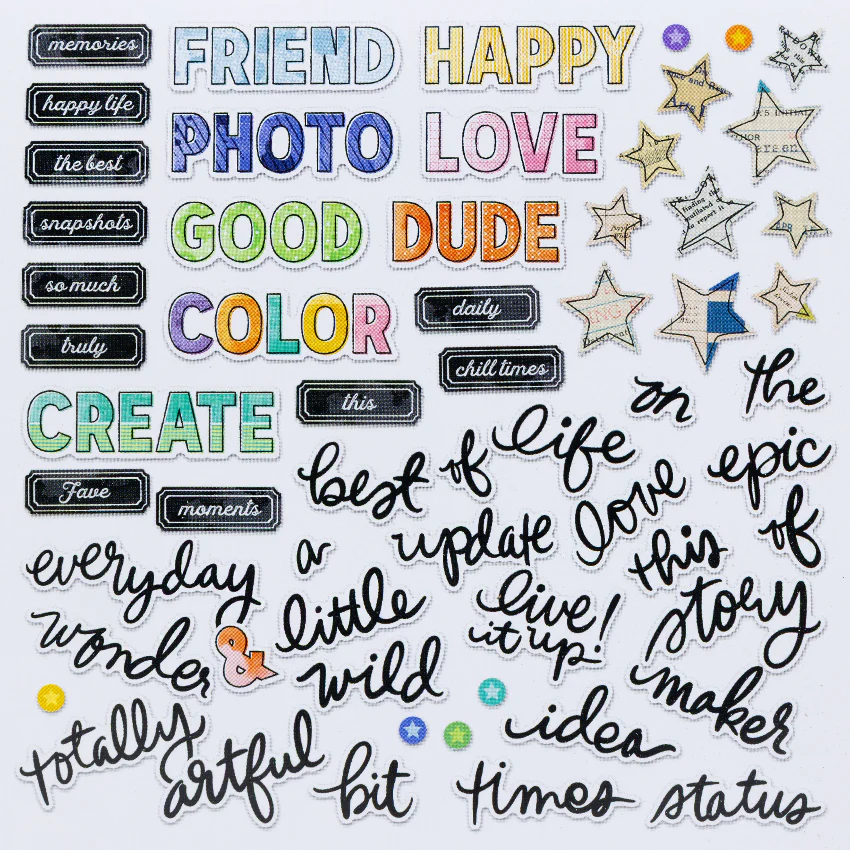 memories
FRIEND
HAPPY
happy life
PHOTO
LOVE
the best
snapshots
GOOD
DUDE
so much
COLOR
daily
truly
chill times
CREATE
this
on
the
Fave
moments
best
of
life
epic
everyday
a
update
love
this
of
wonder
&
little
live
it up!
story
wild
maker
totally
artful
bit
idea
times
status